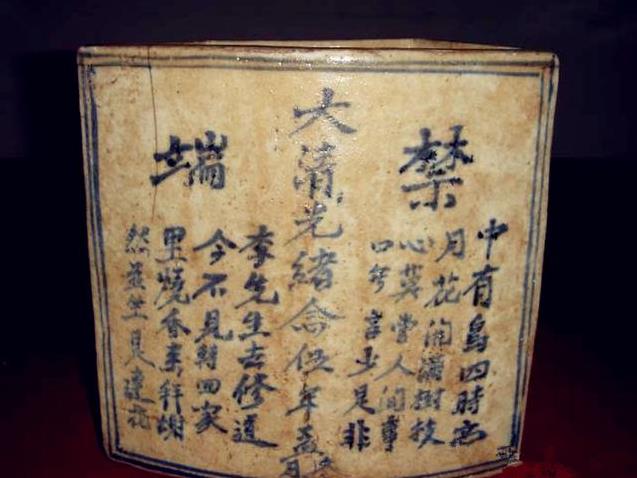 禁
中有鳥四時
月花開滿樹枝
心莫管人間事
口兮言少是非
大清光緒念伍年孟月
端
李先生去修道
今不見轉回家
里燒香來拜謝
然坐見蓮花